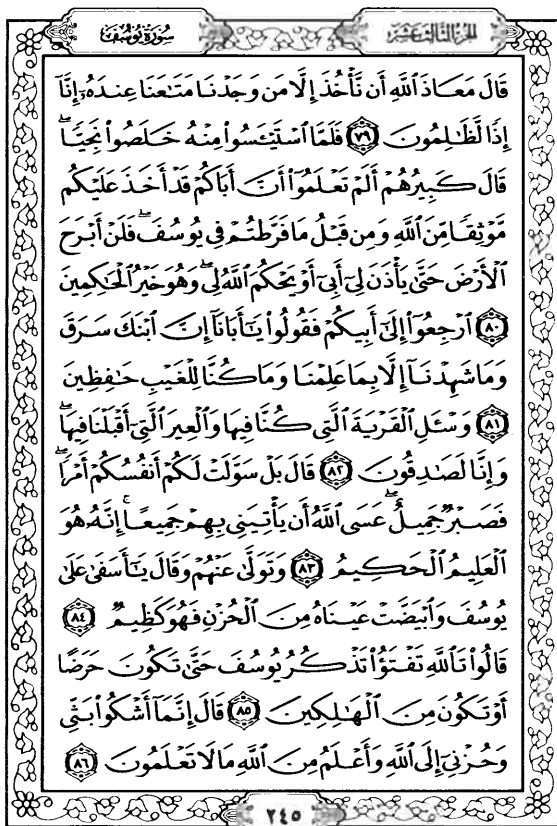 سُورَةُ يُوسُفَ الجُزْءُ الثَّالِثَ عَشَرَ
قَالَ مَعَاذَ ٱللَّهِ أَن نَّأْخُذَ إِلَّا مَن وَجَدْنَا مَتَٰعَنَا عِندَهُۥٓ إِنَّآ
إِذًا لَّظَٰلِمُونَ ٧٩ فَلَمَّا ٱسْتَيْـَٔسُوا۟ مِنْهُ خَلَصُوا۟ نَجِيًّاۖ
قَالَ كَبِيرُهُمْ أَلَمْ تَعْلَمُوٓا۟ أَنَّ أَبَاكُمْ قَدْ أَخَذَ عَلَيْكُم
مَّوْثِقًا مِّنَ ٱللَّهِ وَمِن قَبْلُ مَا فَرَّطتُمْ فِى يُوسُفَۖ فَلَنْ أَبْرَحَ
ٱلْأَرْضَ حَتَّىٰ يَأْذَنَ لِىٓ أَبِىٓ أَوْ يَحْكُمَ ٱللَّهُ لِىۖ وَهُوَ خَيْرُ ٱلْحَٰكِمِينَ
٨٠ ٱرْجِعُوٓا۟ إِلَىٰٓ أَبِيكُمْ فَقُولُوا۟ يَٰٓأَبَانَآ إِنَّ ٱبْنَكَ سَرَقَ
وَمَا شَهِدْنَآ إِلَّا بِمَا عَلِمْنَا وَمَا كُنَّا لِلْغَيْبِ حَٰفِظِينَ
٨١ وَسْـَٔلِ ٱلْقَرْيَةَ ٱلَّتِى كُنَّا فِيهَا وَٱلْعِيرَ ٱلَّتِىٓ أَقْبَلْنَا فِيهَاۖ
وَإِنَّا لَصَٰدِقُونَ ٨٢ قَالَ بَلْ سَوَّلَتْ لَكُمْ أَنفُسُكُمْ أَمْرًاۖ
فَصَبْرٌ جَمِيلٌۖ عَسَى ٱللَّهُ أَن يَأْتِيَنِى بِهِمْ جَمِيعًاۚ إِنَّهُۥ هُوَ
ٱلْعَلِيمُ ٱلْحَكِيمُ ٨٣ وَتَوَلَّىٰ عَنْهُمْ وَقَالَ يَٰٓأَسَفَىٰ عَلَىٰ
يُوسُفَ وَٱبْيَضَّتْ عَيْنَاهُ مِنَ ٱلْحُزْنِ فَهُوَ كَظِيمٌ ٨٤
قَالُوا۟ تَٱللَّهِ تَفْتَؤُا۟ تَذْكُرُ يُوسُفَ حَتَّىٰ تَكُونَ حَرَضًا
أَوْ تَكُونَ مِنَ ٱلْهَٰلِكِينَ ٨٥ قَالَ إِنَّمَآ أَشْكُوا۟ بَثِّى
وَحُزْنِىٓ إِلَى ٱللَّهِ وَأَعْلَمُ مِنَ ٱللَّهِ مَا لَا تَعْلَمُونَ ٨٦
٢٤٥